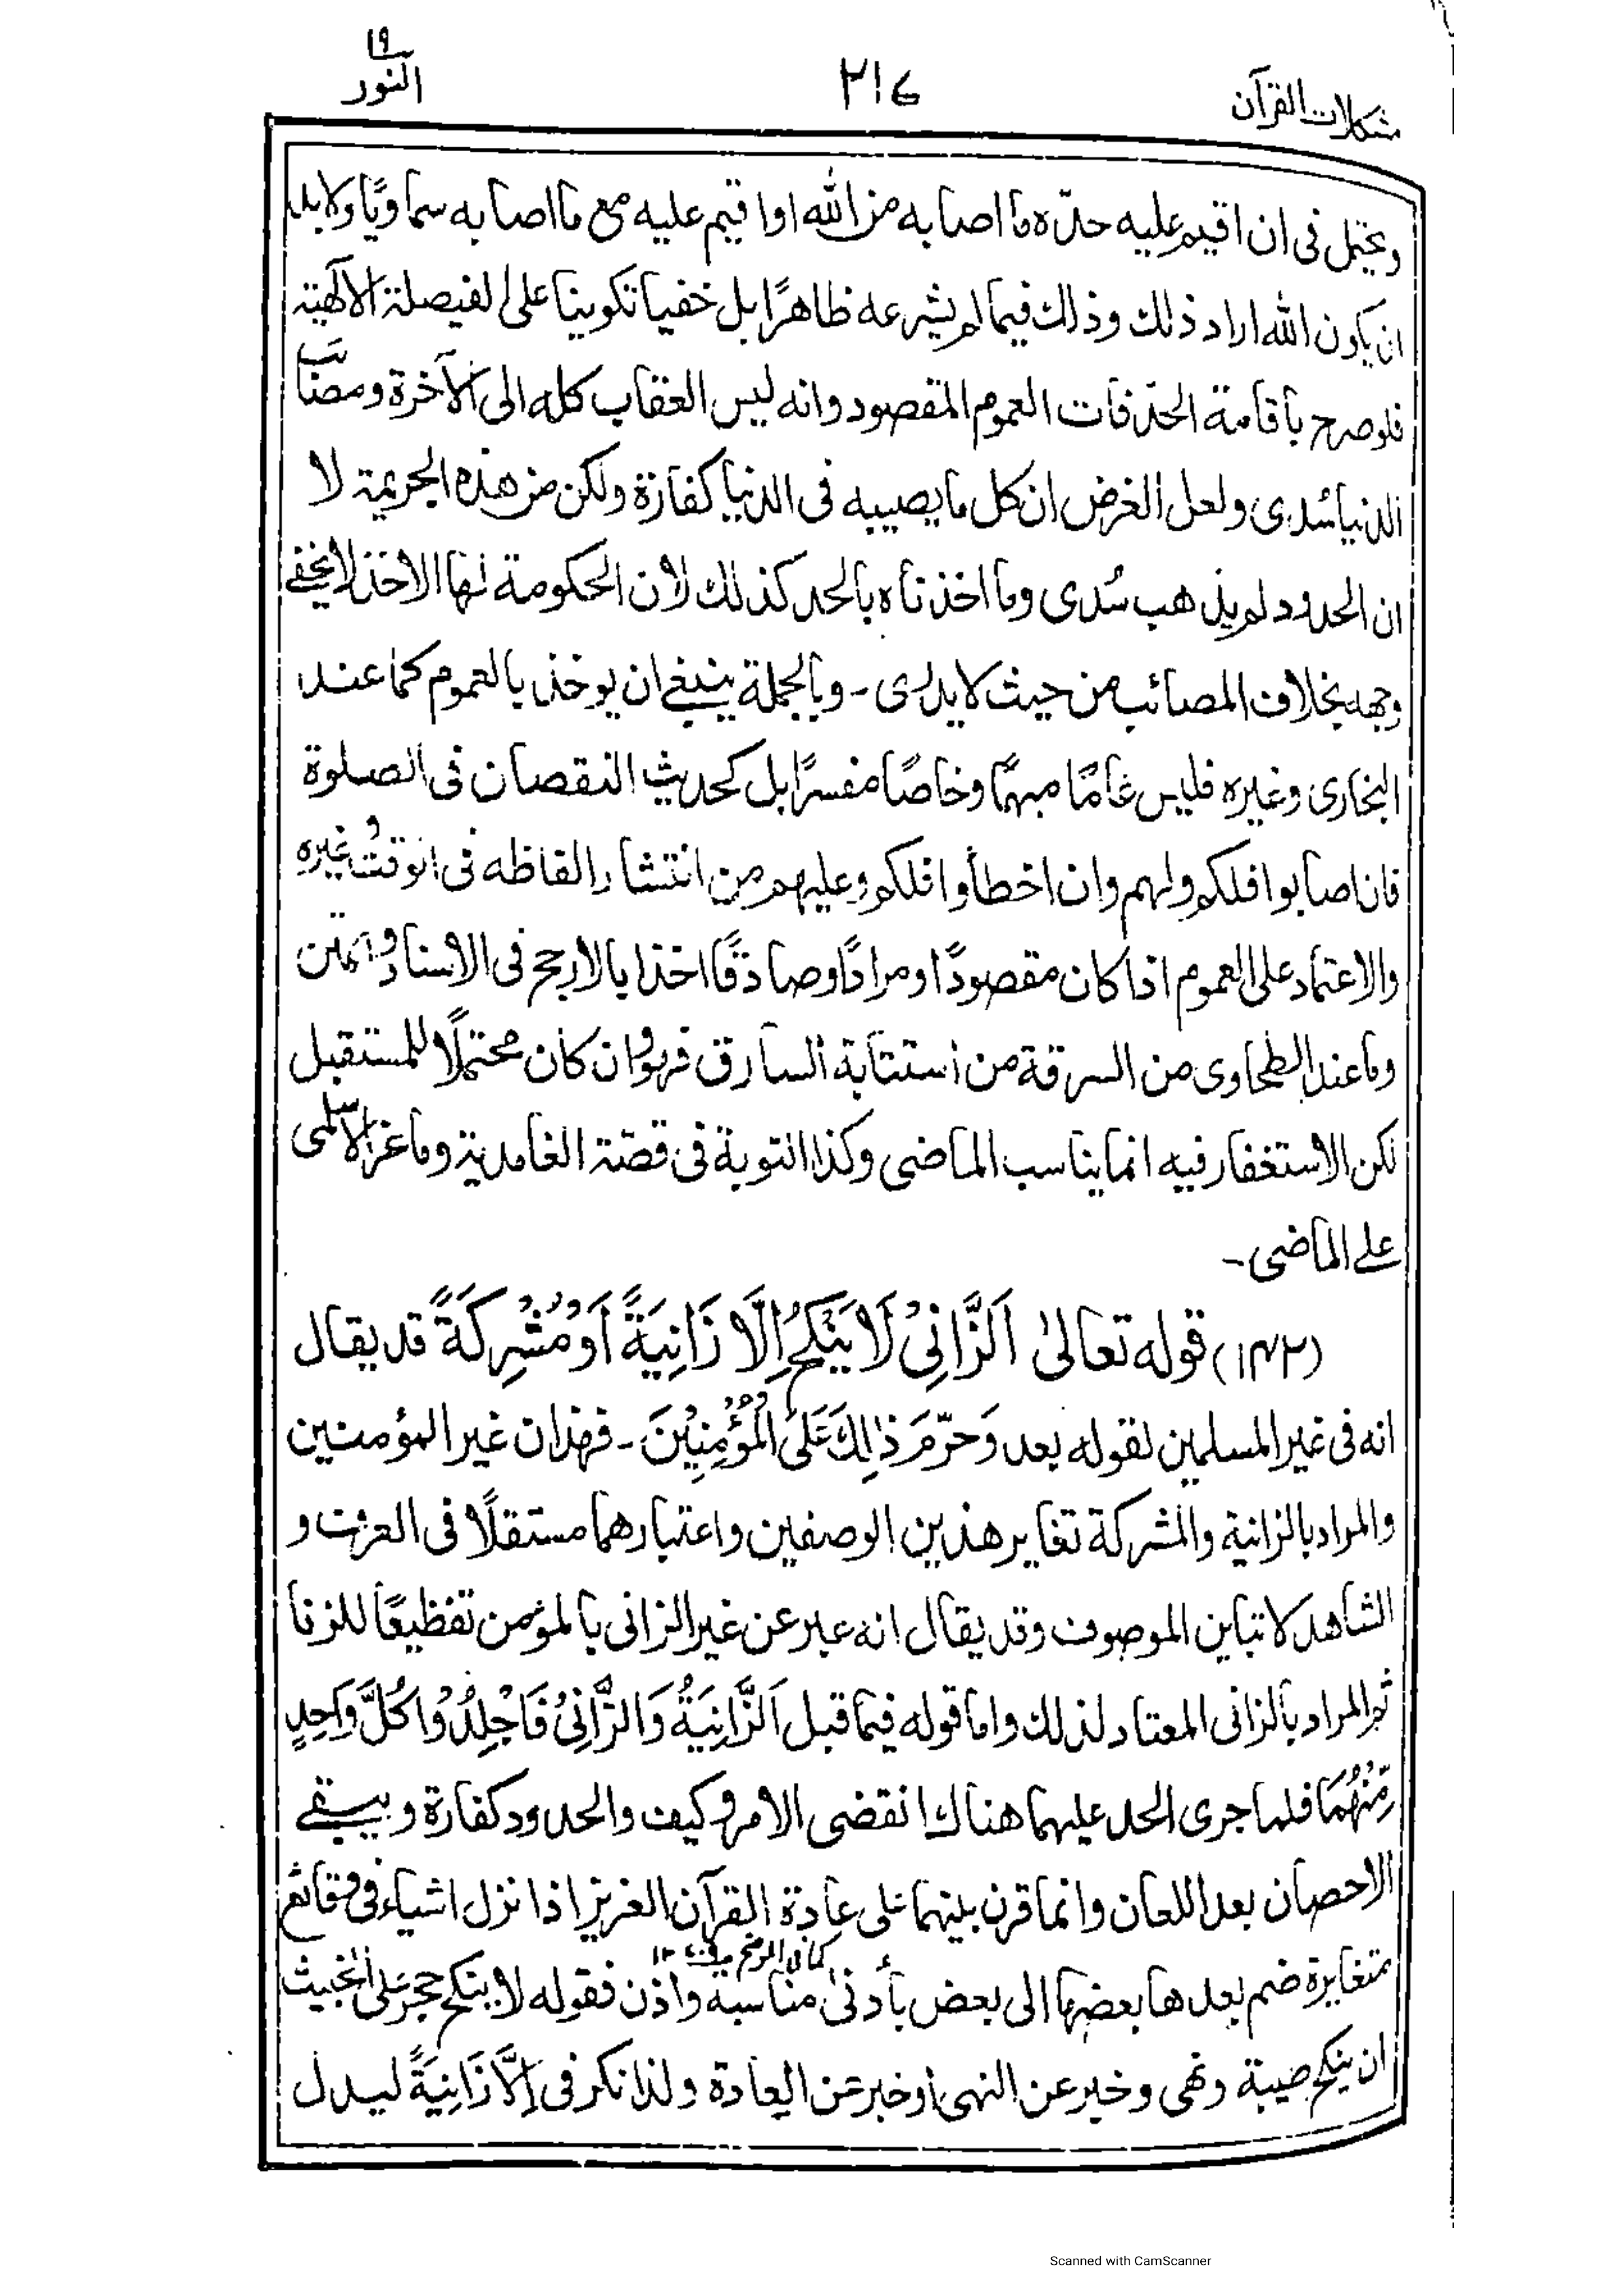 مشكلات القرآن
٢١٤
١٩
النور
ويحتمل فى ان اقيم عليه حدّه ما اصابه من الله او اقيم عليه مع ما اصابه سماويًا ولا بد
ان يكون الله اراد ذلك وذلك فيما لم يشرعه ظاهرًا بل خفيا تكوينا على الفيصلة الالٰهية
فلو صرح بأقامة الحدّ فات العموم المقصود وانه ليس العقاب كله الى الآخرة ومصائب
الدنيا سُدى ولعل الغرض ان كل ما يصيبه فى الدنيا كفارة ولكن من هذه الجريمة لا
ان الحدود لم يذهب سُدى وما اخذناه بالحد كذلك لان الحكومة لها الاخذ لا يخفے
وجهه بخلاف المصائب من حيث لا يدرى - وبالجملة ينبغے ان يوخذ بالعموم كما عند
البخارى وغيره فليس عامًا مبهمًا وخاصًا مفسرًا بل كحديث النقصان فى الصلوة
فان اصابوا فلكم ولهم وان اخطأوا فلكم وعليهم من انتشار الفاظه فى الوقت وغيره
والاعتماد على العموم اذا كان مقصودًا ومرادًا وصادقًا اخذا بالارجح فى الاسناد والمتن
وما عند الطحاوى من السرقة من استتابة السارق فهو وان كان محتملًا للمستقبل
لكن الاستغفار فيه انما يناسب الماضى وكذا التوبة فى قصّة الغامدية وماعز الاسلمى
علے الماضى -
(١٣٢) قوله تعالىٰ اَلزَّانِىْ لَا يَنْكِحُ اِلَّا زَانِيَةً اَوْ مُشْرِكَةً قد يقال
انه فى غير المسلمين لقوله بعد وَحُرِّمَ ذٰلِكَ عَلَى الْمُؤْمِنِيْنَ - فهذان غير المؤمنين
والمراد بالزانية والمشركة تغاير هذين الوصفين واعتبارهما مستقلًا فى العرف و
الشاهد لا تباين الموصوف وقد يقال انه عبر عن غير الزانى بالمؤمن تفظيعًا للزنا
ثم المراد بالزانى المعتاد لذلك واما قوله فيما قبل اَلزَّانِيَةُ وَالزَّانِىْ فَاجْلِدُوْا كُلَّ وَاحِدٍ
مِّنْهُمَا فلما جرى الحد عليهما هناك انقضى الامر وكيف والحدود كفارة ويبقے
الاحصان بعد اللعان وانما قرن بينهما على عادة القرآن العزيز اذا نزل اشياء فى وقائع
متغايرة ضم بعدها بعضها الى بعض بأدنىٰ مناسبة واذن فقوله لا ينكح حجر على الخبيث
ان ينكح صيبة ونهى وخبر عن النهى او خبر عن العادة ولذا نكر فى اِلَّا زَانِيَةً ليدل
Scanned with CamScanner